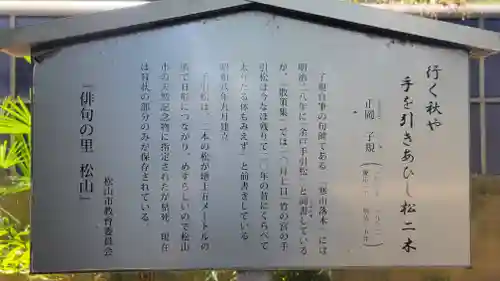 行く秋や
手を引きあひし松二木
正岡子規
子規自筆の句碑である。「寒山落木」には
明治二八年に「余戸手引松」と前書している
が、「散策集」では一〇月七日「竹の宮の手
引松は今なほ残りて二〇年の昔にくらべて
太りたる体もみえず」と前書きしている。
昭和八年九月建立
手引松は、二本の松が地上五メートルの
所で自然につながり、めずらしいので松山
市の天然記念物に指定されたが枯死。現在
は符状の部分のみが保存されている。
松山市教育委員会
『俳句の里 松山』